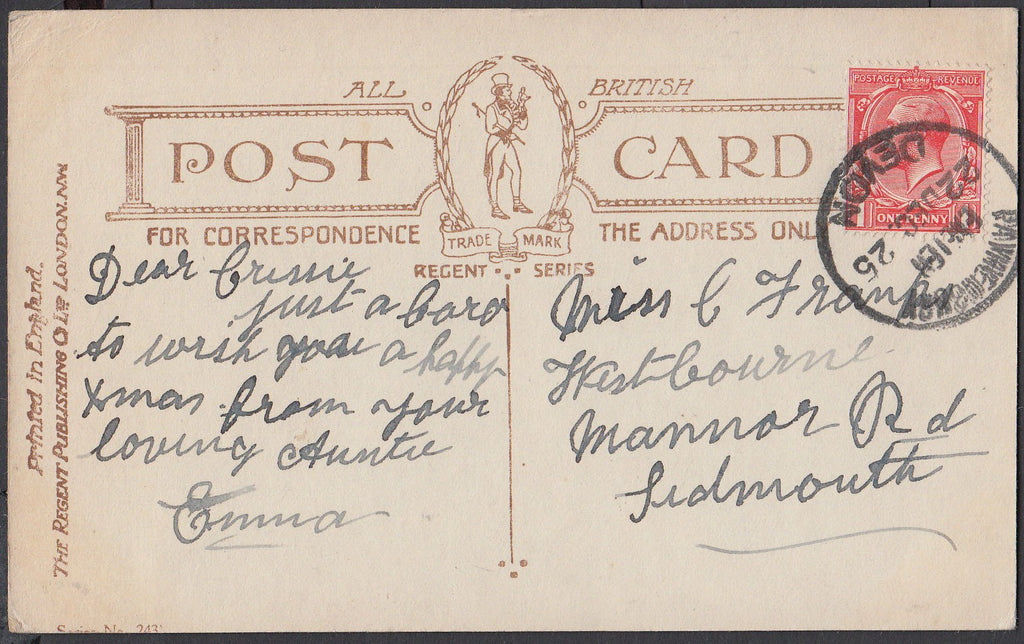 ALL BRITISH
POST CARD
TRADE MARK
FOR CORRESPONDENCE
THE ADDRESS ONL
REGENT SERIES
POSTAGE REVENUE
ONE PENNY
DEVON
22 DE
25
Dear Cissie
just a card
to wish you a happy
Xmas from your
loving Auntie
Emma
Miss C
Westbourne
Mannor Rd
Sidmouth
Printed in England.
THE REGENT PUBLISHING Co LTD LONDON. NW
Series No. 243